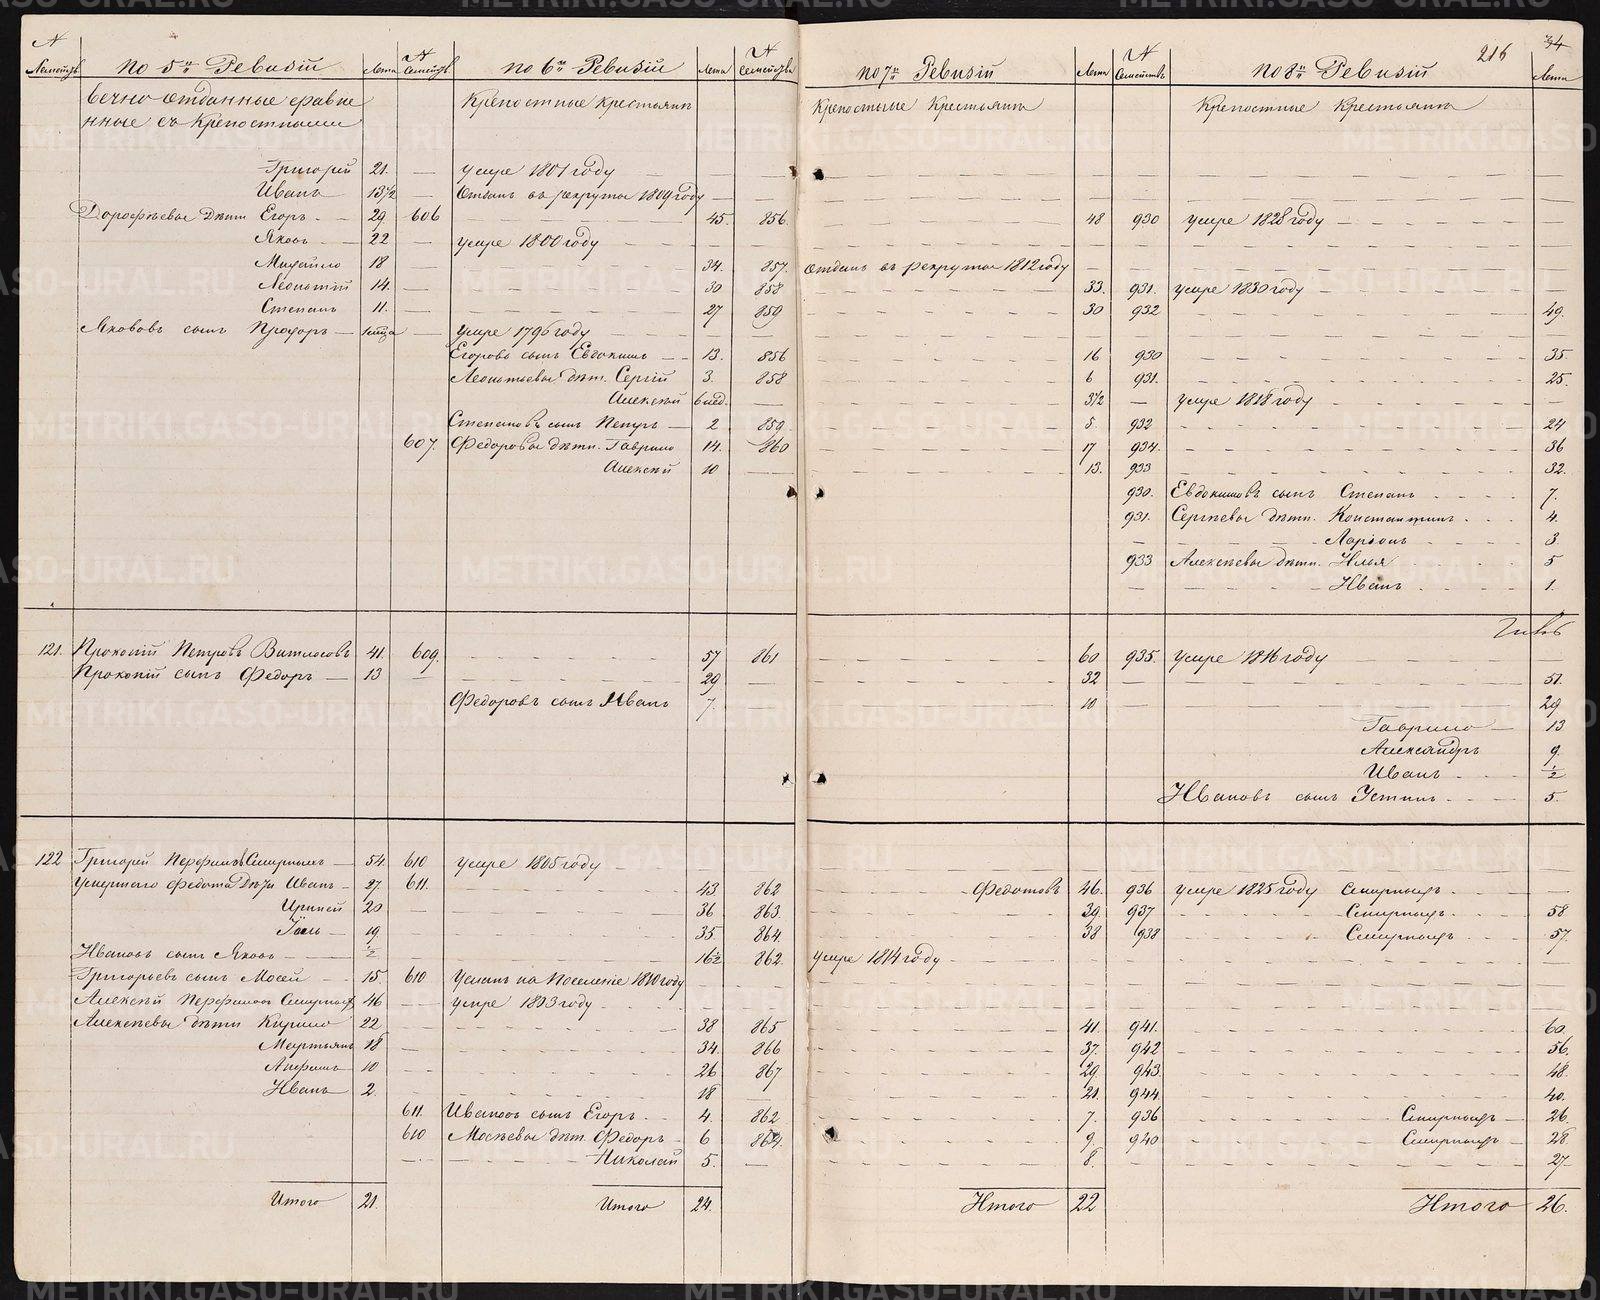 216
34
№ Семействъ по 5й Ревизіи Лета № Семействъ по 6й Ревизіи Лета № Семействъ по 7й Ревизіи Лета № Семействъ по 8й Ревизіи Лета
Вечно отданные сравне Крепостные крестьяня Крепостные Крестьяня Крепостные Крестьяня
нные съ Крепостными
Григорей 21. — умре 1801 году
Иванъ 13½ отданъ въ рекруты 1809 году
Дорофеевы дети Егоръ 29 606 45. 856. 48 930 умре 1828 году
Яковъ 22 — умре 1800 году
Михайло 18 34. 857. отданъ въ рекруты 1812 году
Леонтій 14. 30 858 33. 931. умре 1830 году
Степанъ 11. 27 859 30 932 49.
Яковъ сынъ Прохоръ умре 1796 году
Егоровъ сынъ Евдокимъ 13. 856 16 930 35.
Леонтьевы дет. Сергій 3. 858 6 931. 25.
Алексей 6 нед. — 3½ — умре 1818 году
Степановъ сынъ Петръ 2 859. 5. 932 24
607. Федоровы дети. Гаврило 14. 860 17 934. 36
Алексей 10 — 13. 933 32.
930. Евдокимовъ сынъ Степанъ 7.
931. Сергеевы дети. Константинъ 4.
Ларіонъ 3.
933 Алексеевы дети. Илья 5
Иванъ 1.
121. Прокопій Петровъ 41. 609. 57 861 60 935. умре 1816 году
Прокопій сынъ Федоръ 13 — 29 — 32 — 51.
Федоровъ сынъ Иванъ 7. — 10 — 29
Гаврило 13
Александръ 9.
Иванъ ½
Ивановъ сынъ Устинъ 5.
122 Григорей Перфиловъ Смирныхъ 54. 610 умре 1805 году
Умершаго Федота дети Иванъ 27. 611. 43 862 Федотовъ 46. 936 умре 1825 году Смирныхъ
Ириней 20 — 36 863. 39. 937 Смирныхъ 58
Іоиль 19 35. 864. 38 938 Смирныхъ 57.
Ивановъ сынъ Яковъ ½ 16½ 862. умре 1814 году
Григорьевъ сынъ Мосей 15. 610 Усланъ на Поселеніе 1810 году
Алексей Перфиловъ Смирныхъ 46 — умре 1803 году
Алексеевы дети Кирило 22 38 865 41. 941. 60.
Мартьянъ 18 34. 866 37. 942 56.
10 26 867 29. 943. 48.
Иванъ 2. 18 21. 944. 40.
611. Ивановъ сынъ Егоръ 4. 862 7. 936 Смирныхъ 26.
610 Мосеевы дет. Федоръ 6 9. 940 Смирныхъ 28.
Николай 5. — 8. 27
Итого 21. Итого 24. Итого 22 Итого 26.
METRIKI.GASO-URAL.RU